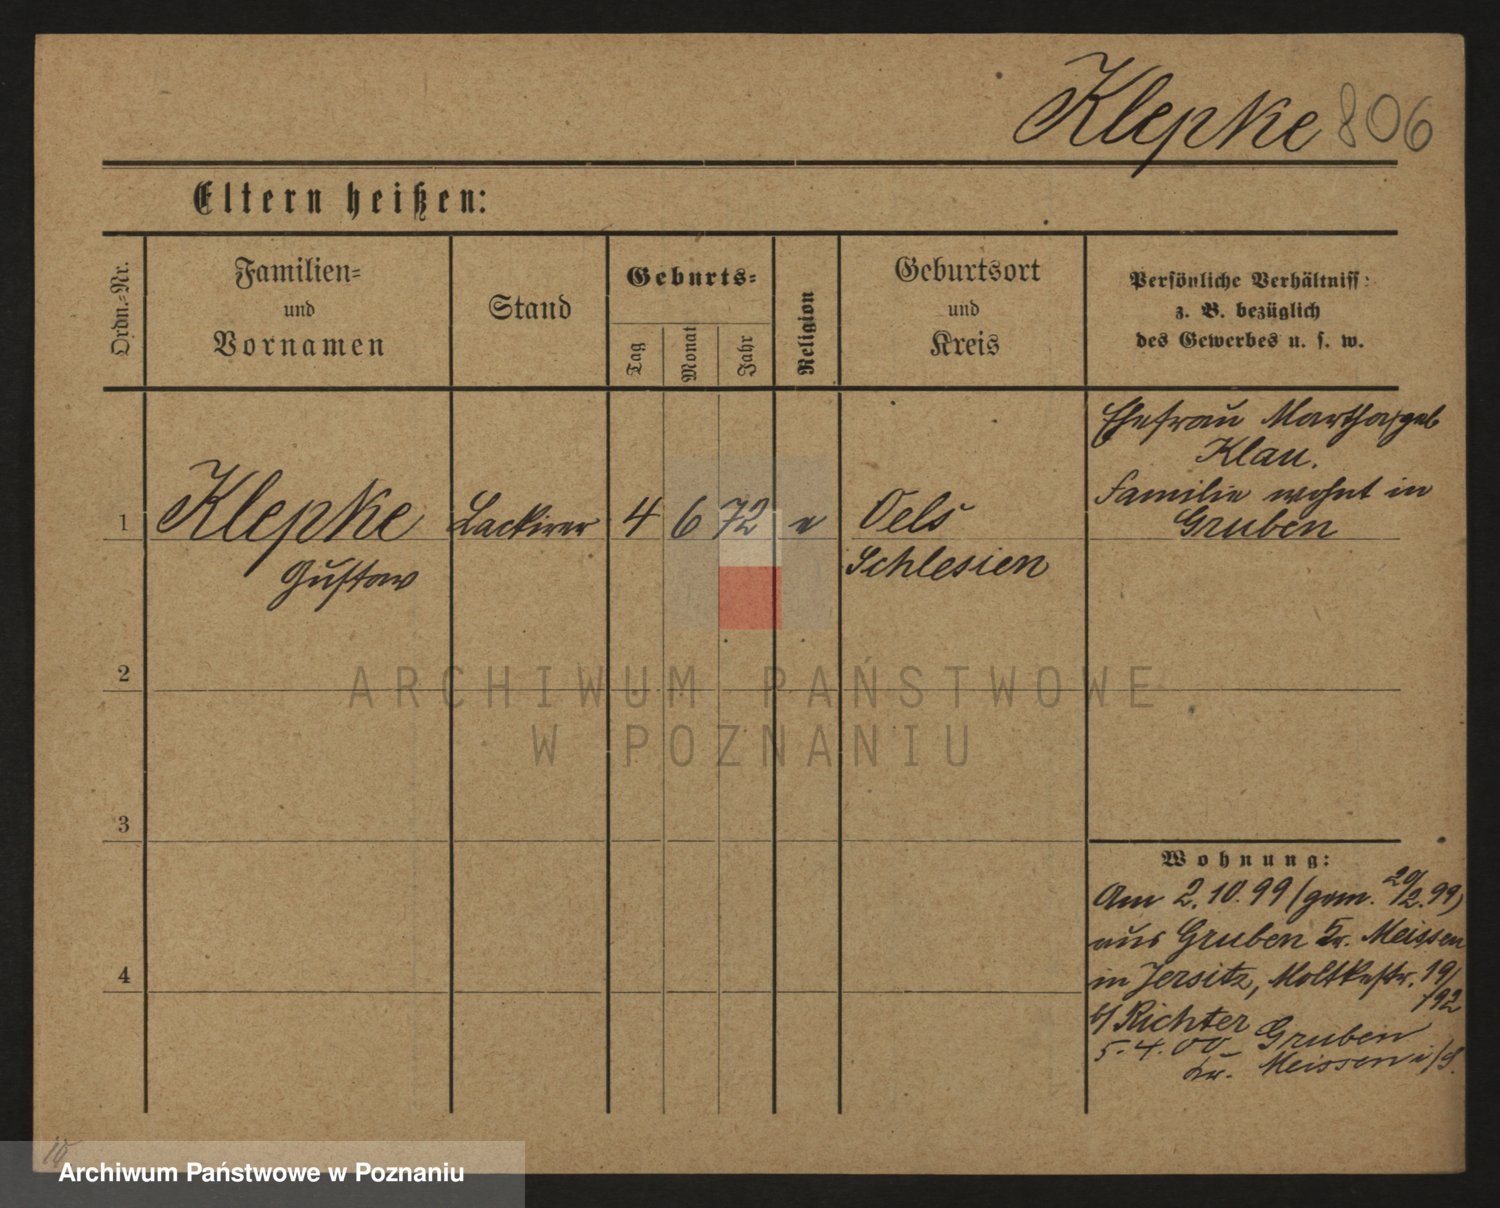 Klepke 806
Eltern heißen:
Ordn.-Nr.
Familien-
und
Vornamen
Stand
Geburts-
Tag
Monat
Jahr
Religion
Geburtsort
und
Kreis
Persönliche Verhältniss:
z. B. bezüglich
des Gewerbes u. s. w.
1
Klepke
Gustav
Lackirer
4 6 72
e
Oels
Schlesien
Ehefrau Martha geb
Klau.
Familie wohnt in
Gruben
2
3
4
Wohnung:
Am 2.10.99 (gem. 20/2.99)
aus Gruben Kr. Meissen
in Jersitz, Moltkestr. 19/
/92
b/ Richter
5.4.00 Gruben
Kr. Meissen i/S.
ARCHIWUM PAŃSTWOWE
W POZNANIU
Archiwum Państwowe w Poznaniu